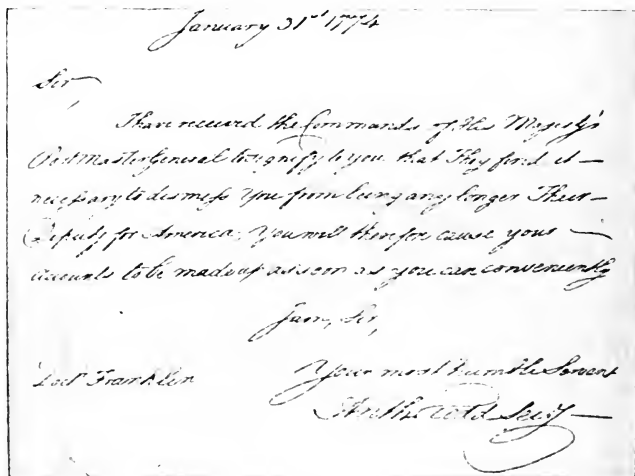 January 31st 1774
Sir
I have received the Commands of His Majesty's
Post Master General to signify to you that They find it —
necessary to dismiss You from being any longer Their —
Deputy for America. You will therefore cause your —
accounts to be made up as soon as you can conveniently
I am, Sir,
Your most humble Servant
Doct Franklin
Anth Todd Secy —